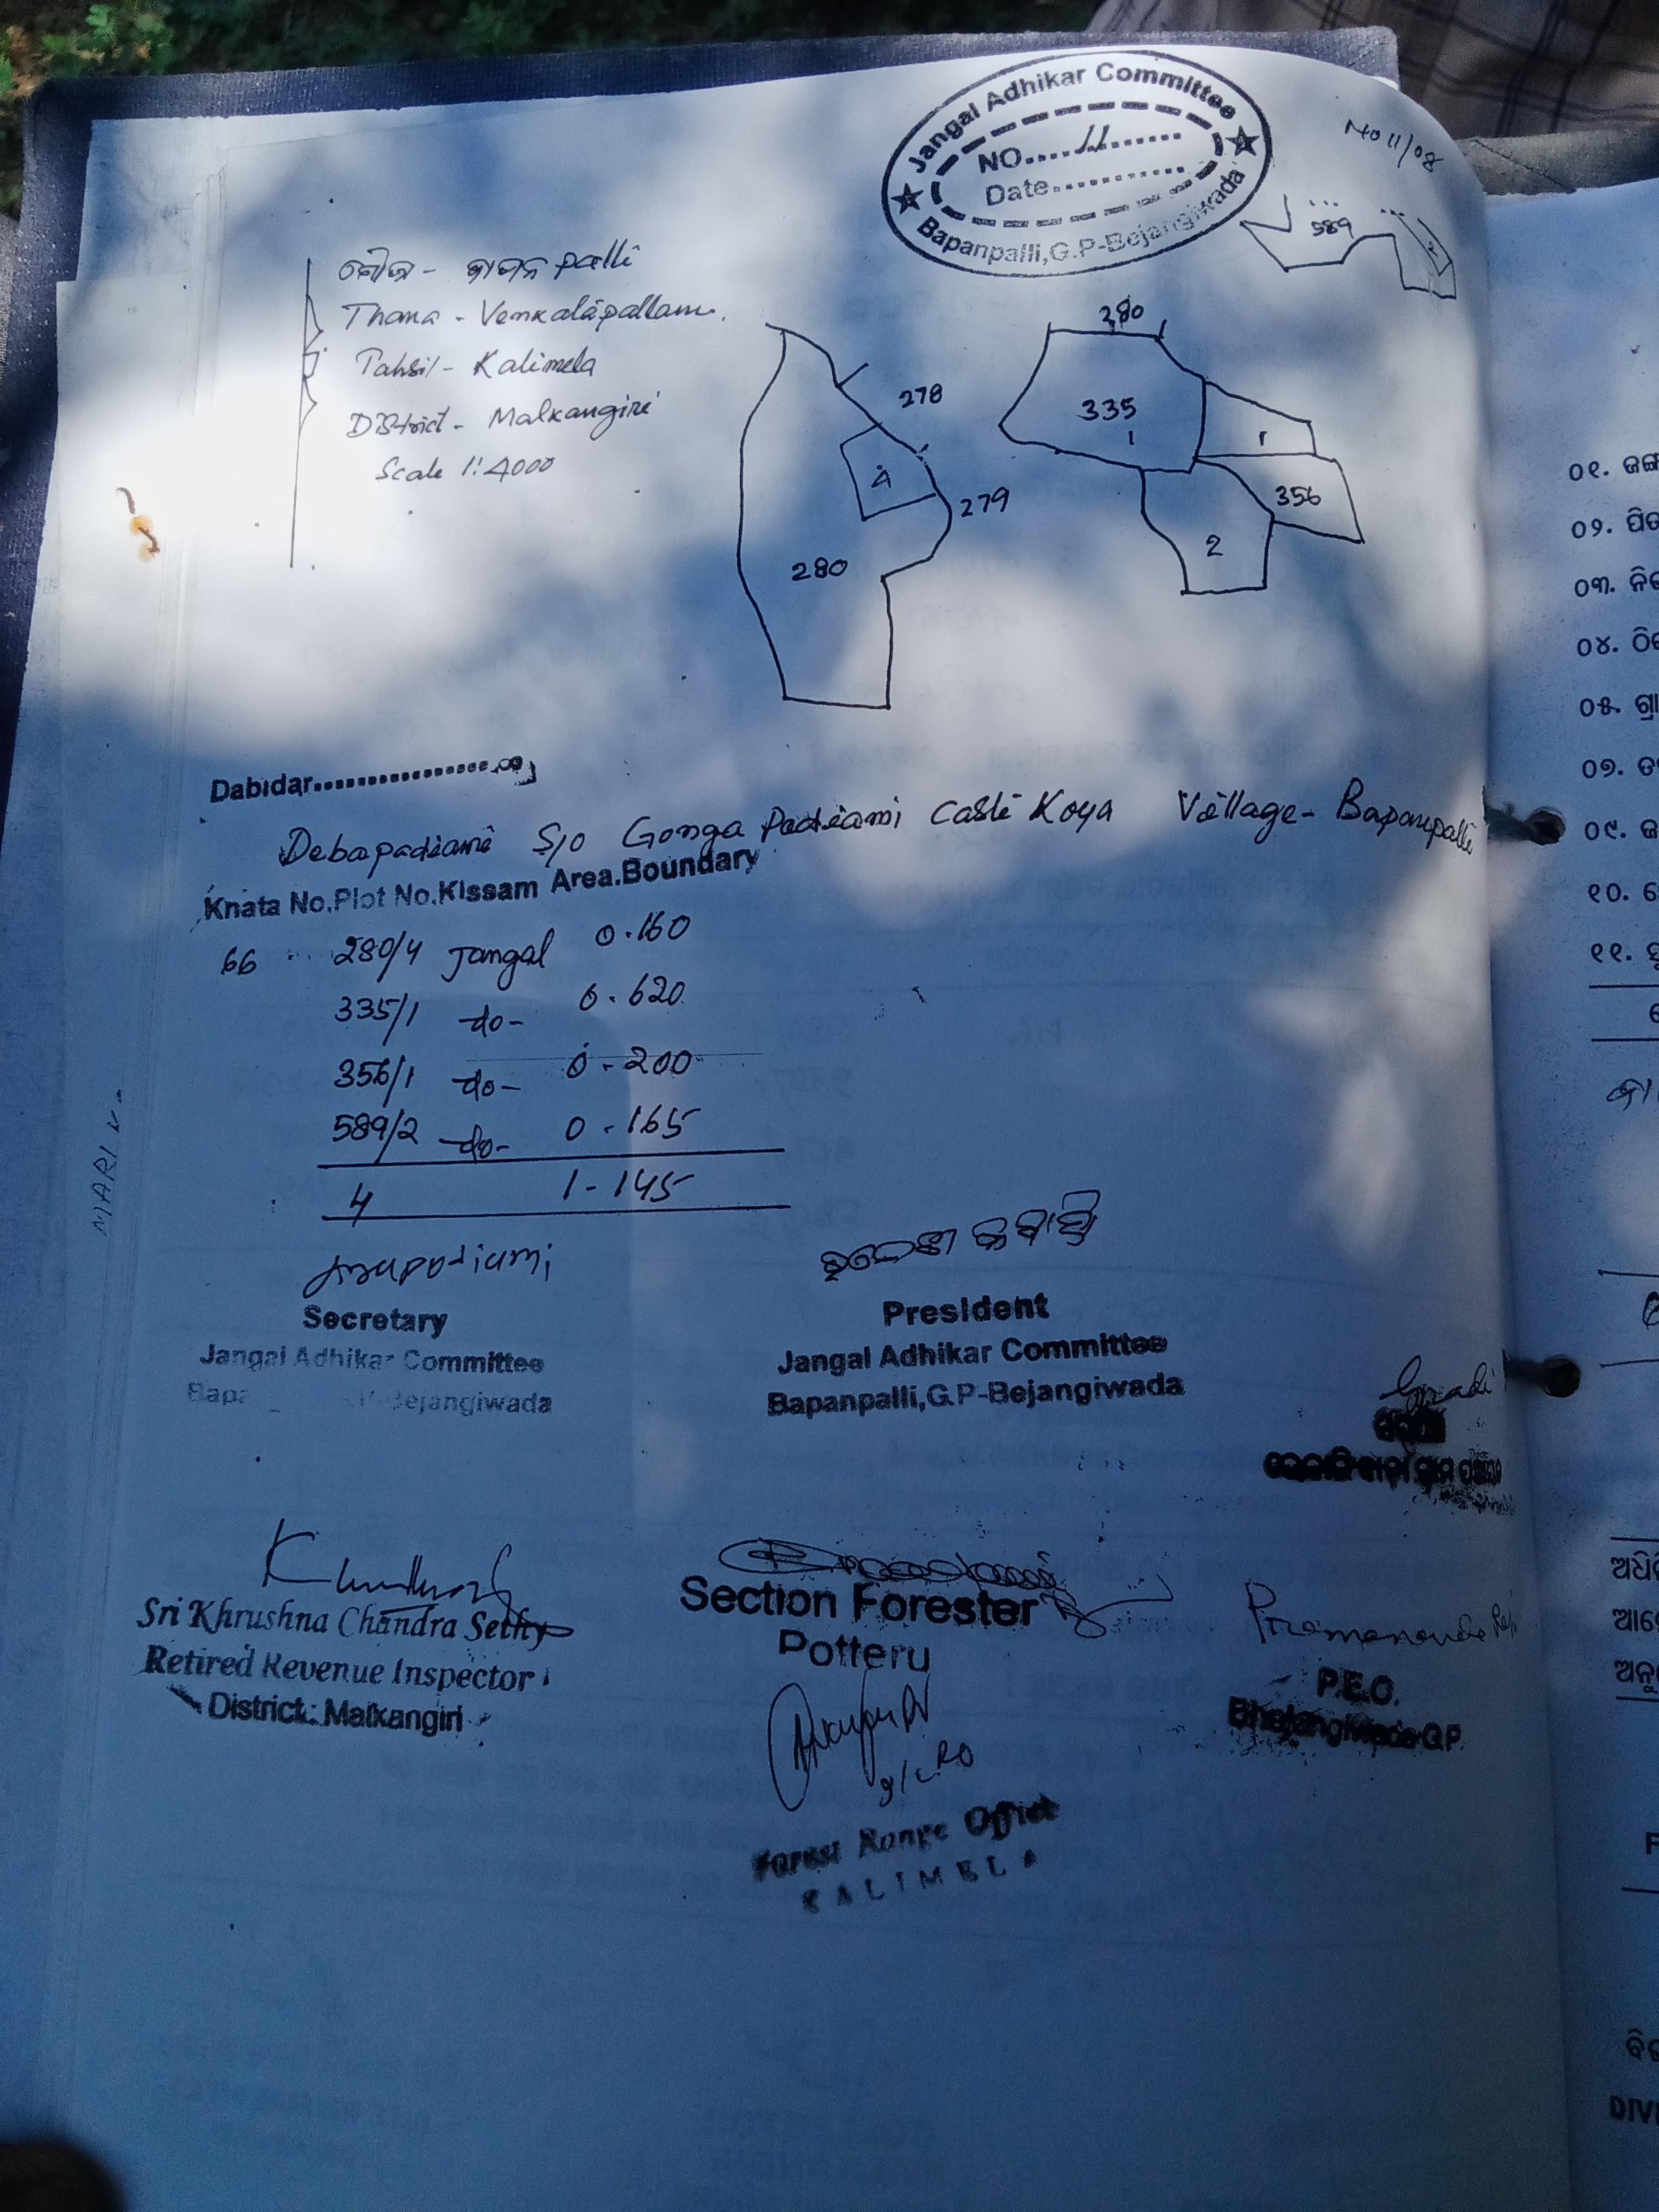 Jangal Adhikar Committee
NO.....11.......
Date............
Bapanpalli,G.P-Bejangiwada
NO 11/08
589
ମୌଜା - ବାପନ palli
Thana - Venkatapallam.
Tahsil - Kalimela
District - Malkangiri
Scale 1:4000
280
278
335
1
1
4
279
356
280
2
Dabidar
Debapadiami S/o Gonga Padiami Caste Koya Village - Bapanpalli
Khata No.Plot No.Kissam Area.Boundary
66 280/4 Jangal 0.160
335/1 -do- 0.620
356/1 -do- 0-200
589/2 -do- 0-165
4 1-145
MARI
Secretary
Jangal Adhikar Committee
Bejangiwada
President
Jangal Adhikar Committee
Bapanpalli,G.P-Bejangiwada
Sri Khrushna Chandra Sethy
Retired Revenue Inspector
District: Malkangiri
Section Forester
Potteru
P.E.O.
Bhejangiwada G.P.
Forest Range Officer
KALIMELA
୦୧.
୦୨.
୦୩.
୦୪.
୦୫.
୦୭.
୦୯.
୧୦.
୧୧.